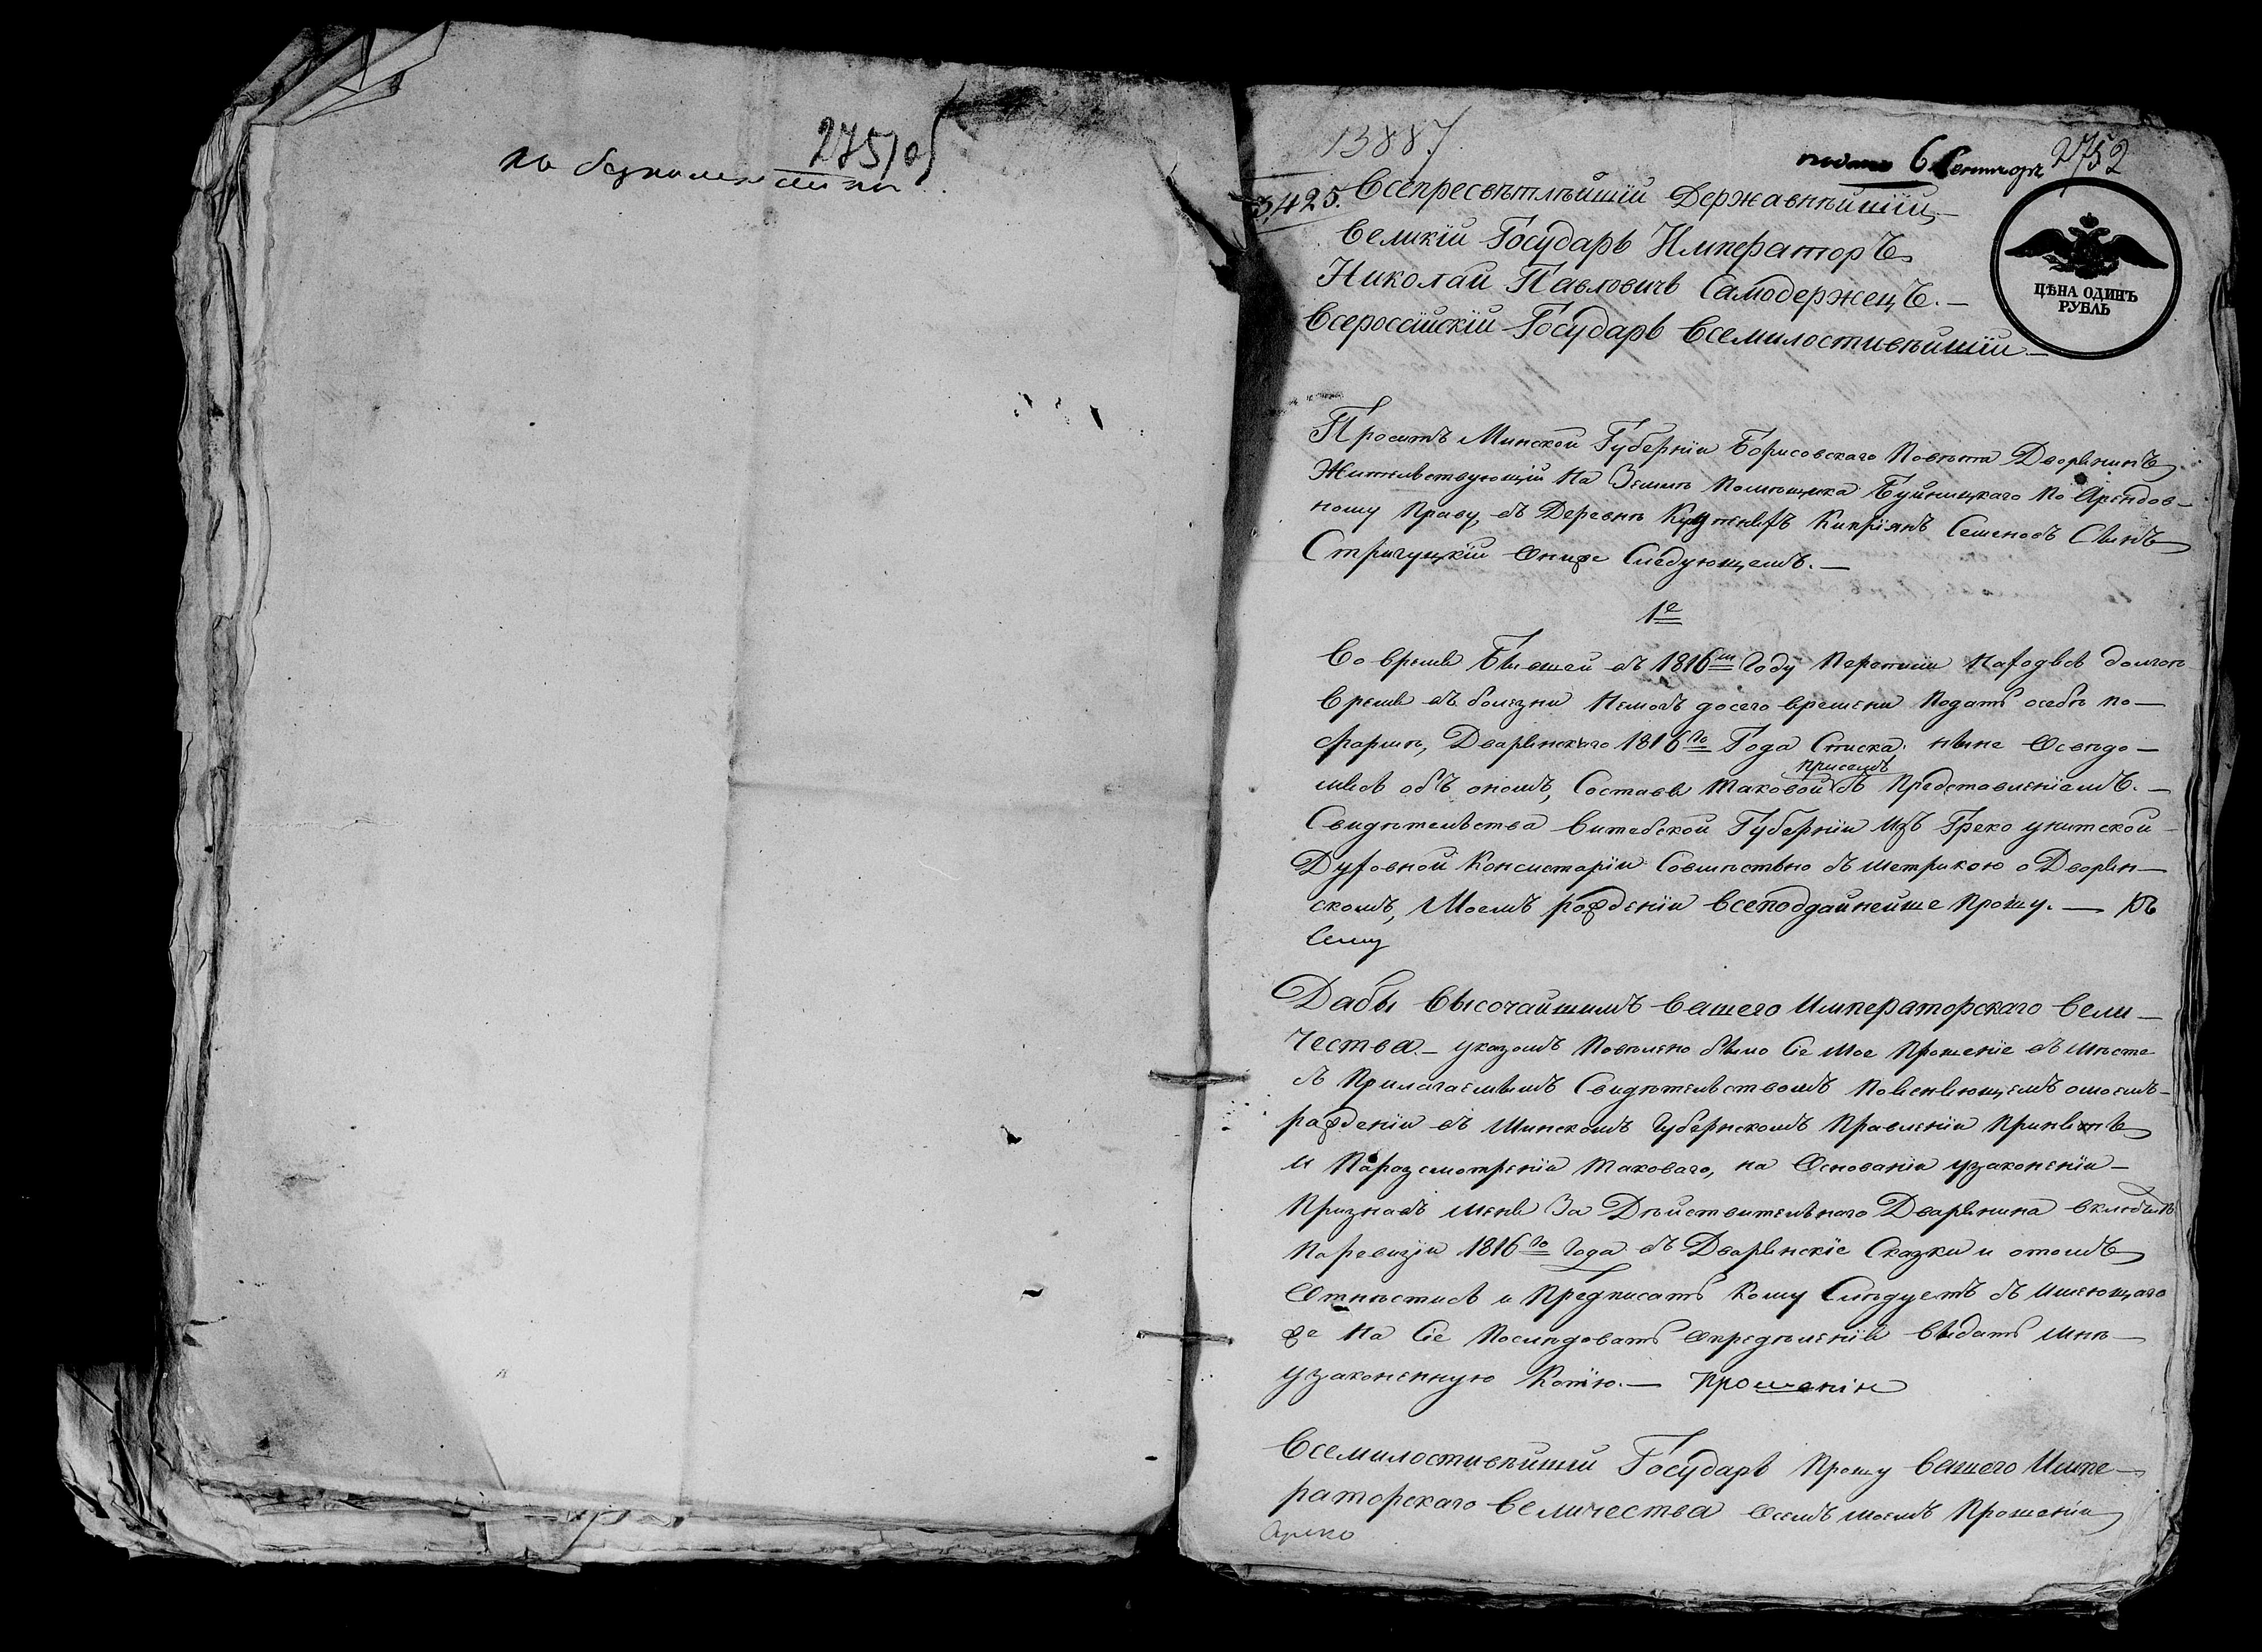 275 об
по
13887.
подано 6 Сентябр 2752
3,425.
Всепресвѣтлѣйшій Державнѣйшій
Великій Государь Императоръ
Николай Павловичь Самодержецъ.
Всероссійскій Государь Всемилостивѣйшій
ЦѢНА ОДИНЪ
РУБЛЬ
Проситъ Минской Губерніи Борисовскаго Повѣта Дворянинъ
Жительствующій На Землѣ Помѣщика Буйницкаго По Арендов-
ному Праву, въ Деревнѣ Кипріянъ Семеновъ Сынъ
Стригуцкій Oниже Слѣдующемъ.
1е
Во время Бывшей въ 1816м Году Переписи Находясь долгое
Время въ болезни Немогъ досего времени Подать особѣ по
формѣ, Дворянскаго 1816го Года Списка. ныне Освѣдо-
мясь объ ономъ, Составя таковой присемъ съ Представленіемъ.
Свидѣтельства Витебской Губерніи Изъ Греко унитской
Духовной Консисторіи Совмѣстно съ метрикою о Дворян-
скомъ, Моемъ рожденіи Всеподдайнейше Прошу. — Къ
Сему
Дабы Высочайшимъ Вашего Императорскаго Вели-
чества. указомъ Повѣлено было Сіе Мое Прошеніе въ Мѣсте
съ Прилагаемымъ Свидѣтельствомъ Поясняющемъ омоемъ
рожденіи въ Минскомъ Губернскомъ Правленіи Принять
И Поразсмотреніи таковаго, на Основаніи узаконеніи
Признавъ меня За Дѣйствительнаго Дворянина
Поревизіи 1816го Года въ Дворянскіе Сказки и отомъ
Отнѣстись и Предписать Кому Слѣдуетъ съ Имеющаго
же На Сіе Послѣдовать Опредѣленія Выдать Мнѣ
узаконенную Копію. — Прошеніи
Всемилостивѣйшій Государь Прошу Вашего Импе-
раторскаго Величества Осемъ моемъ Прошеніи